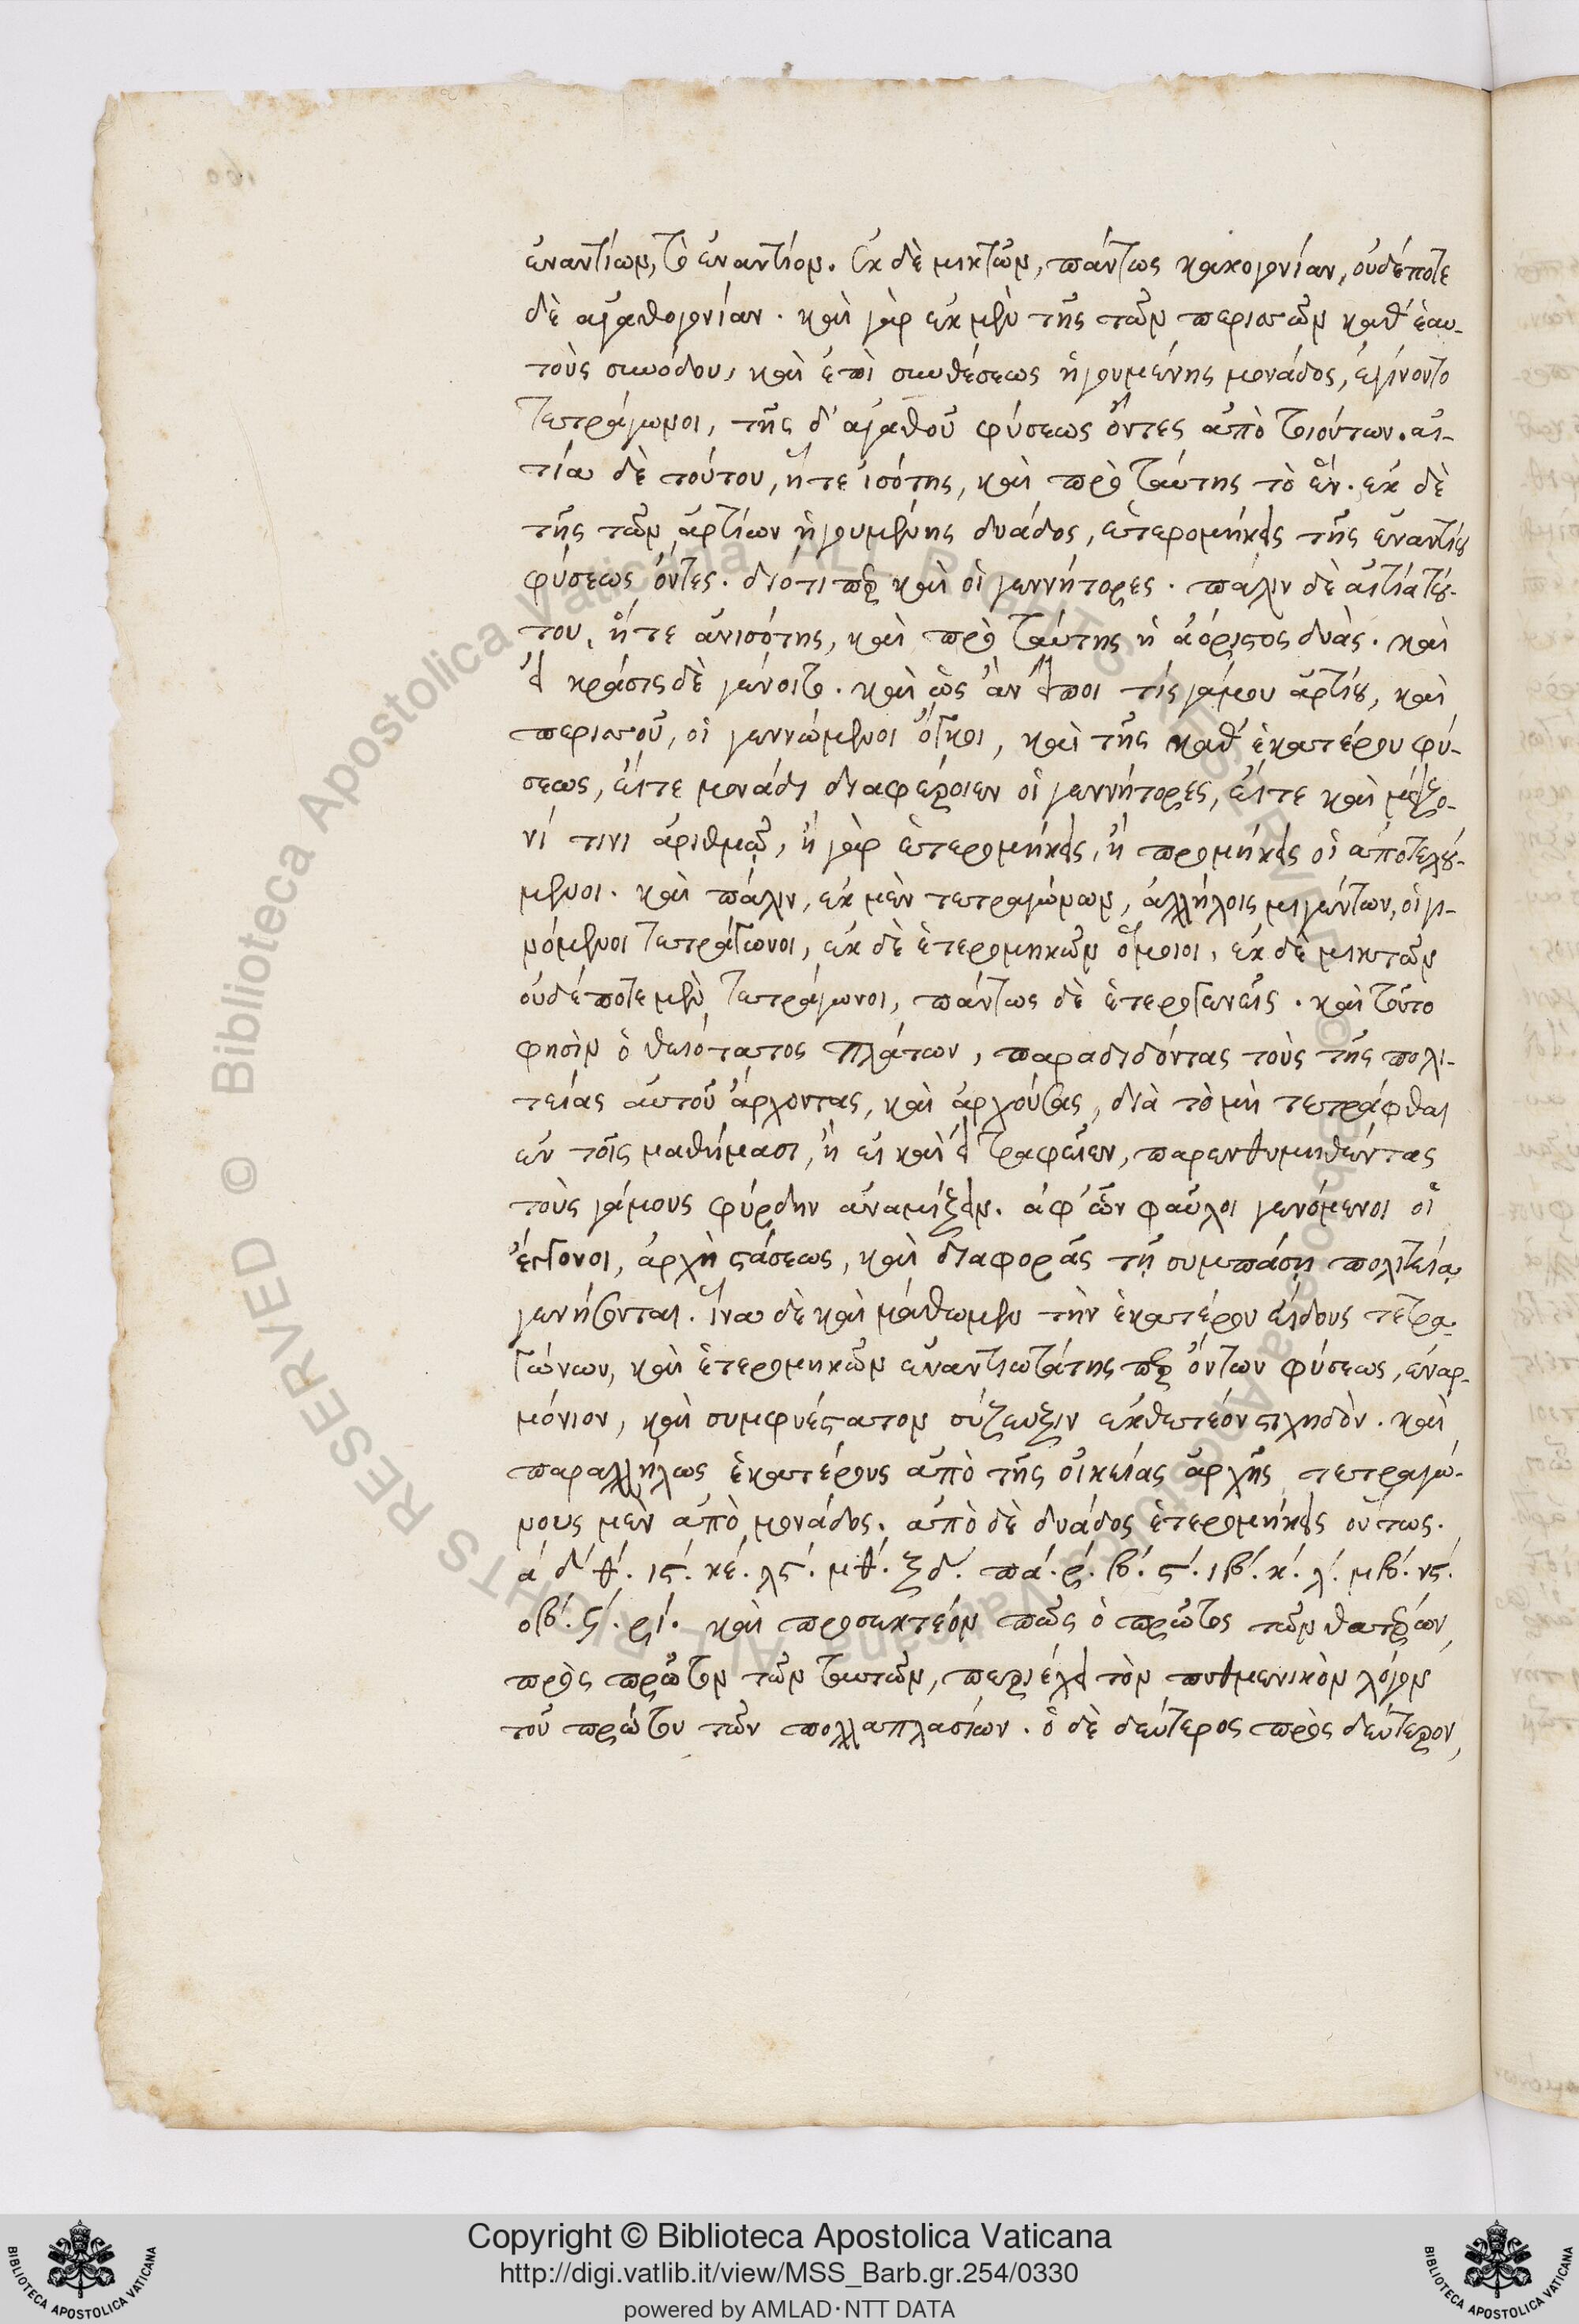 ἐναντίων, τὸ ἐναντίον. Ἐκ δὲ μικτῶν, πάντως κακογονίαν, οὐδέποτε
δὲ ἀγαθογονίαν. καὶ γὰρ ἐκ μὲν τῆς τῶν περισσῶν καθ' ἑαυ-
τοὺς συνόδου, καὶ ἐπὶ συνθέσεως ἡγουμένης μονάδος, ἐγίνοντο
τετράγωνοι, τῆς δ' ἀγαθοῦ φύσεως ὄντες ἀπὸ τοιούτων. αἰ-
τία δὲ τούτου, ἥτε ἰσότης, καὶ πρὸ ταύτης τὸ ἕν. ἐκ δὲ
τῆς τῶν ἀρτίων ἡγουμένης δυάδος, ἑτερομήκεις τῆς ἐναντίου
φύσεως ὄντες. διότι περ καὶ οἱ γεννήτορες. πάλιν δὲ αἰτία τού-
του, ἥτε ἀνισότης, καὶ πρὸ ταύτης ἡ ἀόριστος δυάς. καὶ
εἰ κράσις δὲ γένοιτο. καὶ ὡς ἂν εἴποι τίς γάμου ἀρτίου, καὶ
περισσοῦ, οἱ γεννώμενοι καὶ τῆς καθ' ἑκατέρου φύ-
σεως, εἴτε μονάδι διαφέροιεν οἱ γεννήτορες, εἴτε καὶ μείζο-
νί τινι ἀριθμῷ, ἢ γὰρ ἑτερομήκεις, ἢ προμήκεις οἱ ἀποτελού-
μενοι. καὶ πάλιν, ἐκ μὲν τετραγώνων, ἀλλήλοις μιγέντων, οἱ γι-
νόμενοι τετράγωνοι, ἐκ δὲ ἑτερομηκῶν ὅμοιοι, ἐκ δὲ μικτῶν
οὐδέποτε μὲν τετράγωνοι, πάντως δὲ ἑτερογενεῖς. καὶ τοῦτο
φησὶν ὁ θειότατος Πλάτων, παραδιδόντας τοὺς τῆς πολι-
τείας αὐτοῦ ἄρχοντας, καὶ ἀρχούσας, διὰ τὸ μὴ τετράφθαι
ἐν τοῖς μαθήμασι, ἢ εἰ καὶ εἰ τραφεῖεν, παρενθυμηθέντας
τοὺς γάμους φύρδην ἀναμίξειν. ἀφ' ὧν φαῦλοι γενόμενοι οἱ
ἔκγονοι, ἀρχὴ στάσεως, καὶ διαφορᾶς τῇ συμπάσῃ πολιτείᾳ
γενήσονται. Ἵνα δὲ καὶ μάθωμεν τὴν ἑκατέρου εἴδους τετρα-
γώνων, καὶ ἑτερομηκῶν ἐναντιωτάτης περ ὄντων φύσεως, ἐναρ-
μόνιον, καὶ συμφυέστατον σύζευξιν ἐκθετέον στιχηδὸν. καὶ
παραλλήλως ἑκατέρους ἀπὸ τῆς οἰκείας ἀρχῆς τετραγώ-
νους μὲν ἀπὸ μονάδος. ἀπὸ δὲ δυάδος ἑτερομήκεις οὕτως.
ά δ' θ'. ις'. κέ. λς'. μθ'. ξδ'. πά. ρ'. β'. ς'. ιβ'. κ'. λ'. μβ'. νς'.
οβ'. ϟ'. ρι'. καὶ προσεκτέον πῶς ὁ πρῶτος τῶν θατέρων,
πρὸς πρῶτον τῶν ταυτῶν, περιέχει τὸν πυθμενικὸν λόγον
τοῦ πρώτου τῶν πολλαπλασίων. ὁ δὲ δεύτερος πρὸς δεύτερον,
Copyright © Biblioteca Apostolica Vaticana
http://digi.vatlib.it/view/MSS_Barb.gr.254/0330
powered by AMLAD·NTT DATA